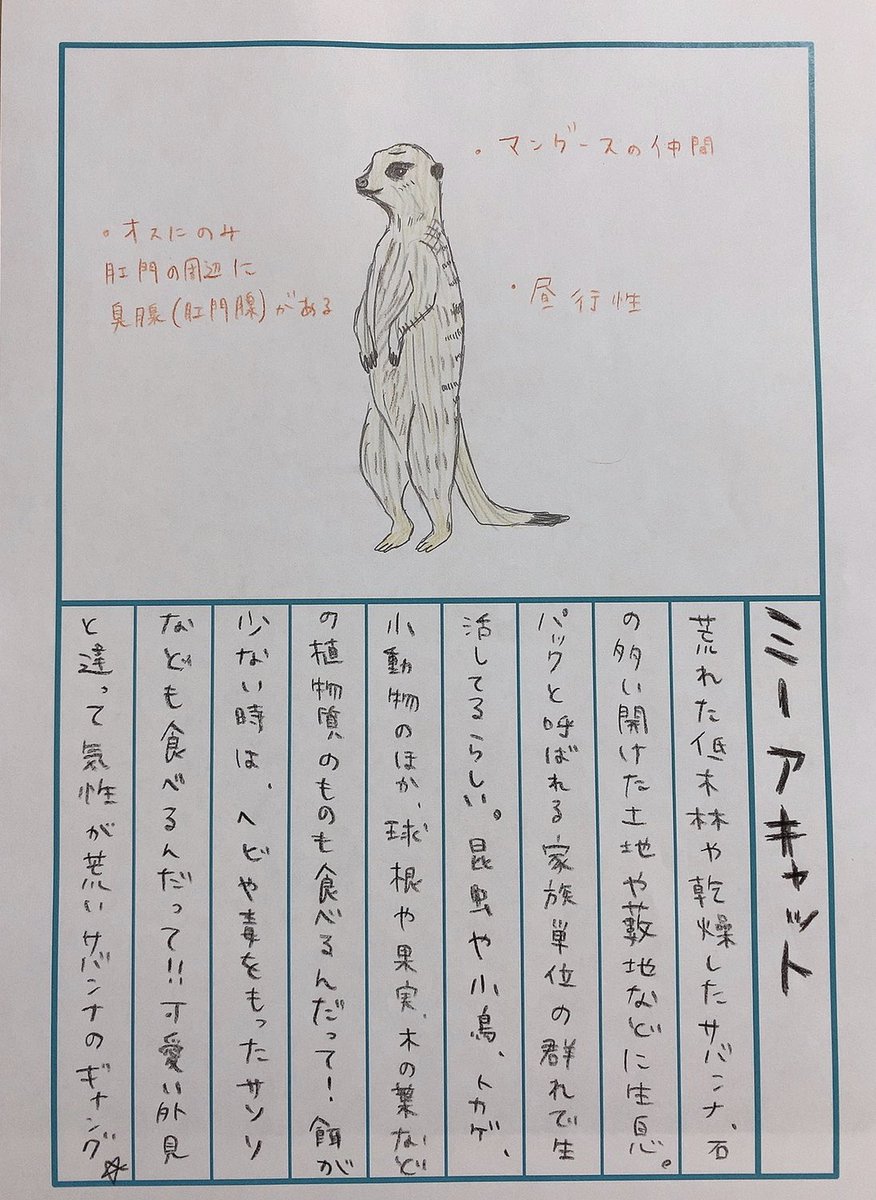 ・マングースの仲間
・オスにのみ
肛門の周辺に
臭腺(肛門腺)がある
・昼行性
ミーアキャット
荒れた低木林や乾燥したサバンナ、石
の多い開けた土地や藪地などに生息。
パックと呼ばれる家族単位の群れで生
活してるらしい。昆虫や小鳥、トカゲ、
小動物のほか、球根や果実、木の葉など
の植物質のものも食べるんだって!餌が
少ない時は、ヘビや毒をもったサソリ
なども食べるんだって!!可愛い外見
と違って気性が荒いサバンナのギャング☆